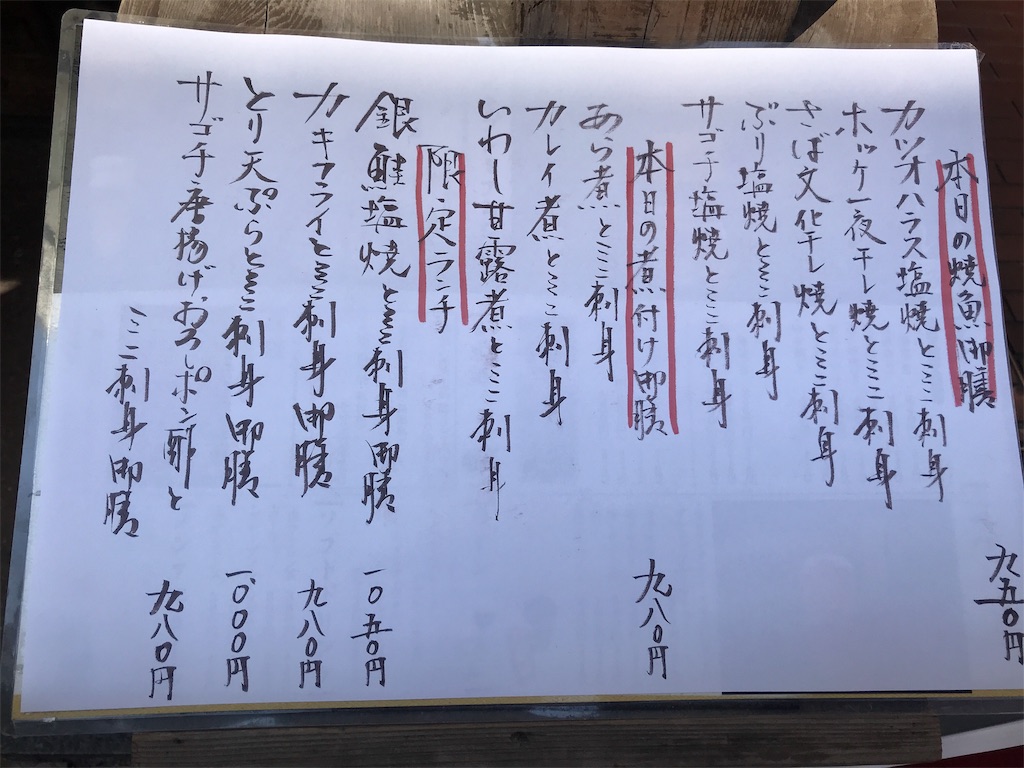 本日の焼魚御膳 九五〇円
カツオハラス塩焼とミニ刺身
ホッケ一夜干し焼とミニ刺身
さば文化干し焼とミニ刺身
ぶり塩焼とミニ刺身
サゴチ塩焼とミニ刺身
本日の煮付け御膳 九八〇円
あら煮とミニ刺身
カレイ煮とミニ刺身
いわし甘露煮とミニ刺身
限定ランチ
銀鮭塩焼とミニ刺身御膳 一〇五〇円
カキフライとミニ刺身御膳 九八〇円
とり天ぷらとミニ刺身御膳 一、〇〇〇円
サゴチ唐揚げおろしポン酢と
ミニ刺身御膳 九八〇円